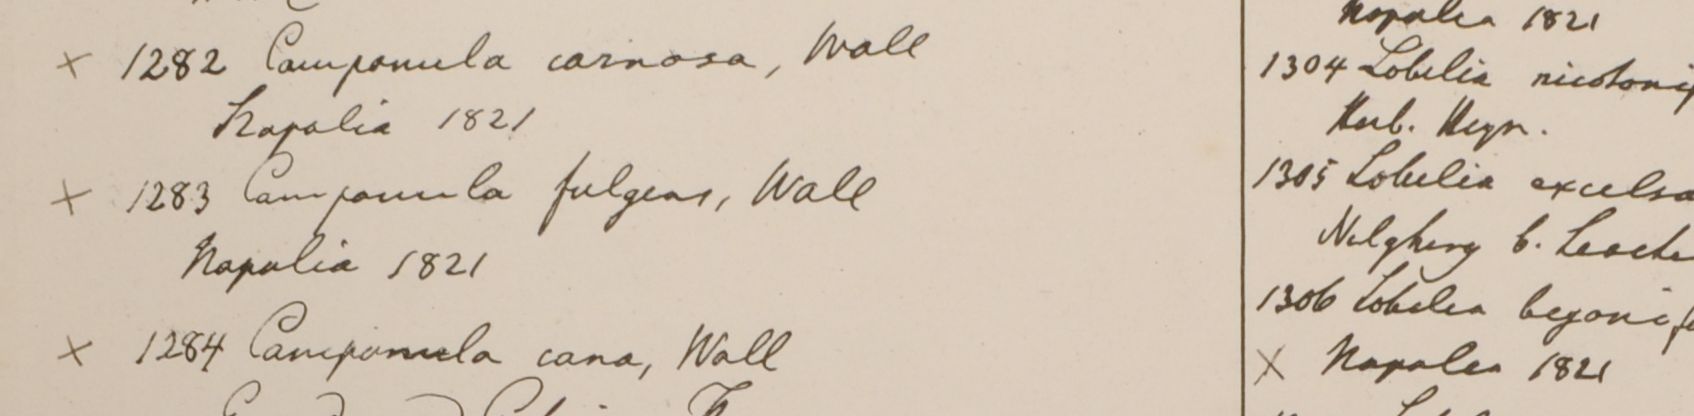 × 1282 Campanula carnosa, Wall
Napalia 1821
× 1283 Campanula fulgens, Wall
Napalia 1821
× 1284 Campanula cana, Wall
Napalia 1821
1304 Lobelia
Herb. Heyn.
1305 Lobelia excelsa
Nilghery b.
1306 Lobelia
× Napalia 1821